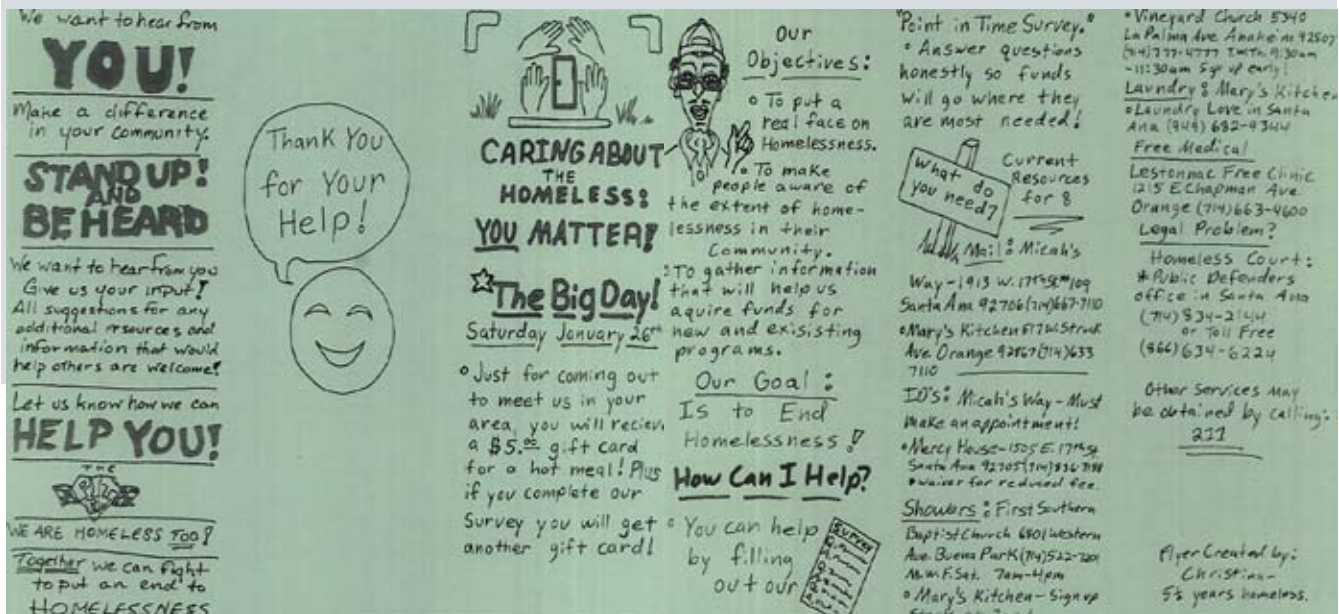 We want to hear from
YOU!
Make a difference
in your community.
STAND UP!
AND
BE HEARD
We want to hear from you
Give us your input!
All suggestions for any
additional resources and
information that would
help others are welcome!
Let us know how we can
HELP YOU!
THE
WE ARE HOMELESS TOO!
Together we can fight
to put an end to
HOMELESSNESS
Thank You
for Your
Help!
CARING ABOUT
THE
HOMELESS:
YOU MATTER!
The Big Day!
Saturday January 26th
• Just for coming out
to meet us in your
area, you will recieve
a $5.00 gift card
for a hot meal! Plus
if you complete our
Survey you will get
another gift card!
Our
Objectives:
• To put a
real face on
Homelessness.
• To make
people aware of
the extent of home-
lessness in their
Community.
• To gather information
that will help us
aquire funds for
new and exisisting
programs.
Our Goal:
Is to End
Homelessness!
How Can I Help?
• You can help
by filling
out our
Survey
"Point in Time Survey."
• Answer questions
honestly so funds
will go where they
are most needed!
What do
you need?
Current
Resources
for 8
Mail: Micah's
Way - 1913 W. 17th St # 109
Santa Ana 92706 (714) 667-7110
• Mary's Kitchen 517 W. Struck
Ave. Orange 92867 (714) 633
7110
ID's: Micah's Way - Must
make an appointment!
• Mercy House - 1505 E. 17th St.
Santa Ana 92705 (714) 836-7188
• waiver for reduced fee.
Showers: First Southern
Baptist Church 6801 Western
Ave. Buena Park (714) 522-7201
M.W.F.Sat. 7am-4pm
• Mary's Kitchen - Sign up
• Vineyard Church 5340
La Palma Ave Anaheim 92807
(714) 777-4777 9:30am
-11:30am Sign up early!
Laundry: Mary's Kitchen
• Laundry Love in Santa
Ana (949) 682-9344
Free Medical
Lestonnac Free Clinic
1215 E. Chapman Ave
Orange (714) 663-4600
Legal Problem?
Homeless Court:
* Public Defenders
office in Santa Ana
(714) 834-2144
or Toll Free
(866) 634-6224
Other Services May
be obtained by calling:
211
Flyer Created by:
Christina-
5½ years homeless.